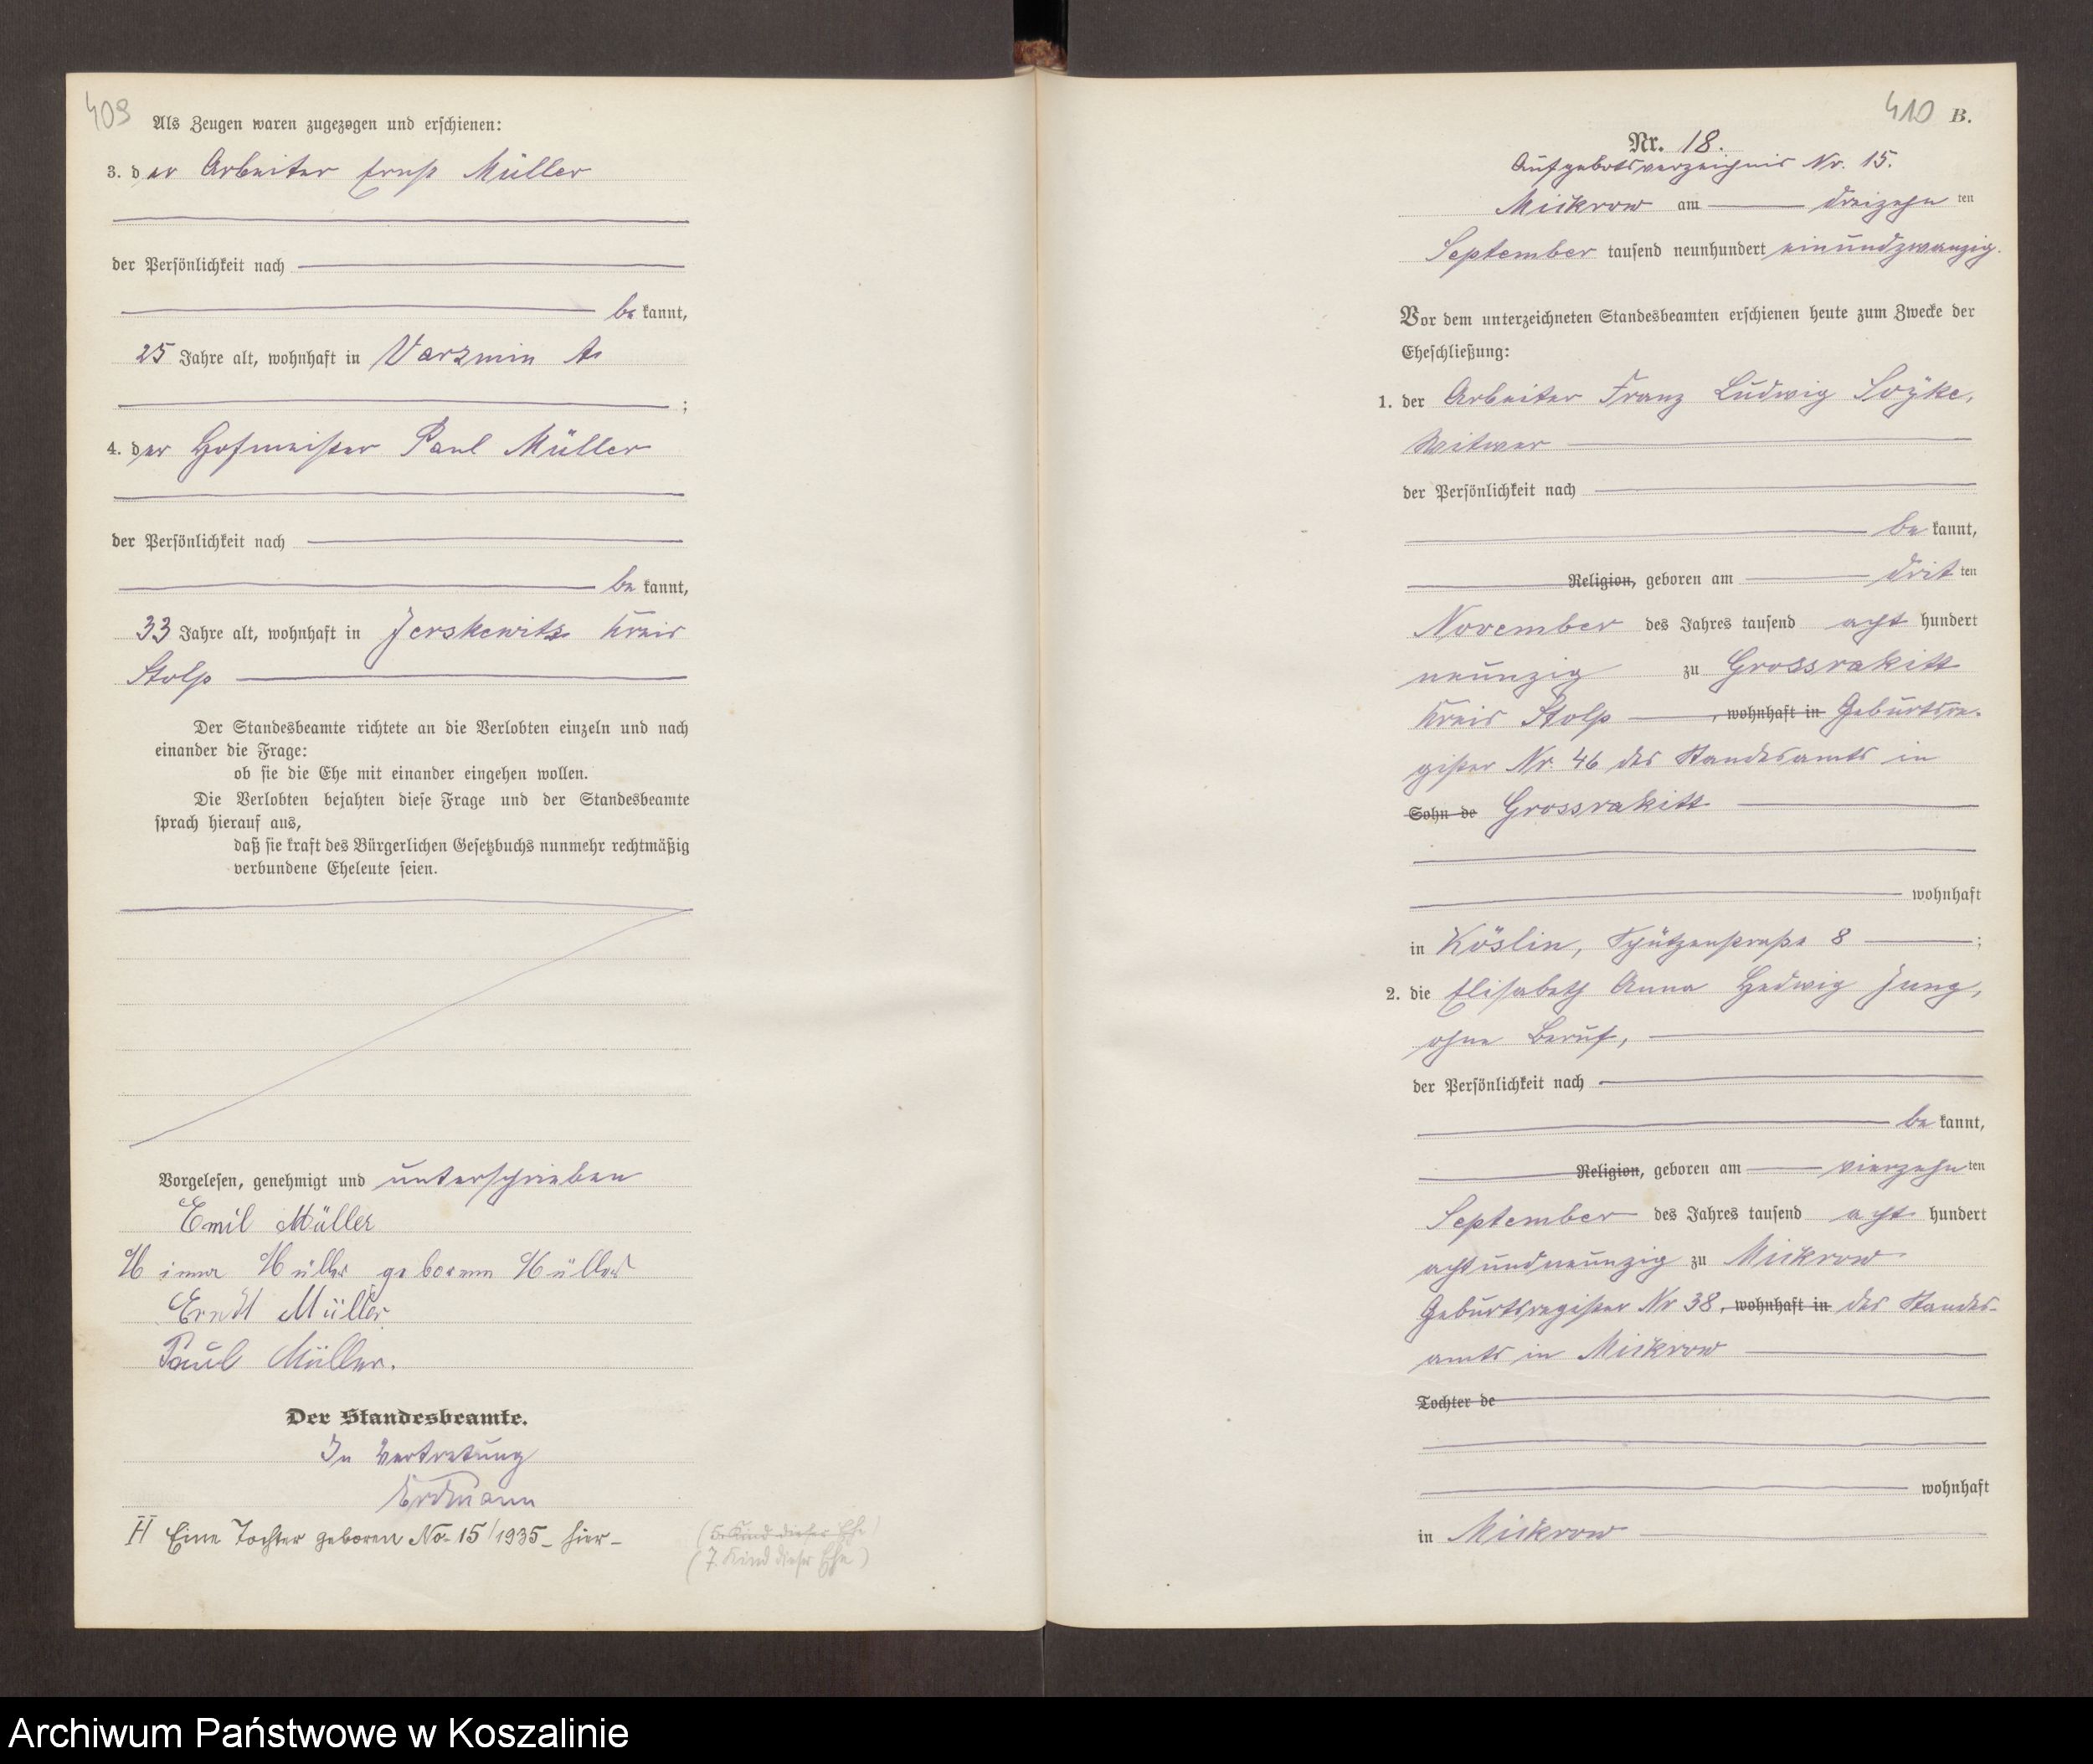 409
Als Zeugen waren zugezogen und erschienen:
3. der Arbeiter Ernst Müller
der Persönlichkeit nach
be kannt,
25 Jahre alt, wohnhaft in Varzmin A
;
4. der Hofmeister Paul Müller
der Persönlichkeit nach
be kannt,
33 Jahre alt, wohnhaft in Jerskewitz Kreis
Stolp
Der Standesbeamte richtete an die Verlobten einzeln und nach
einander die Frage:
ob sie die Ehe mit einander eingehen wollen.
Die Verlobten bejahten diese Frage und der Standesbeamte
sprach hierauf aus,
daß sie kraft des Bürgerlichen Gesetzbuchs nunmehr rechtmäßig
verbundene Eheleute seien.
Vorgelesen, genehmigt und unterschrieben
Emil Müller
Minna Müller geborene Müller
Ernst Müller
Paul Müller.
Der Standesbeamte.
In Vertretung
Erdmann
H Eine Tochter geboren No. 15/1935 - hier -
(5. Kind dieser Ehe)
(7. Kind dieser Ehe)
410 B.
Nr. 18.
Aufgebotsverzeichnis Nr. 15.
Mickrow am dreizehn ten
September tausend neunhundert einundzwanzig.
Vor dem unterzeichneten Standesbeamten erschienen heute zum Zwecke der
Eheschließung:
1. der Arbeiter Franz Ludwig Soyke,
Witwer
der Persönlichkeit nach
be kannt,
Religion, geboren am drit ten
November des Jahres tausend acht hundert
neunzig zu Grossrakitt
Kreis Stolp , wohnhaft in Geburtsre-
gister Nr. 46 des Standesamts in
Sohn de Grossrakitt
wohnhaft
in Köslin, Schützenstraße 8 ;
2. die Elisabeth Anna Hedwig Jung,
ohne Beruf,
der Persönlichkeit nach
be kannt,
Religion, geboren am vierzehn ten
September des Jahres tausend acht hundert
achtundneunzig zu Mickrow
Geburtsregister Nr 38, wohnhaft in des Standes-
amts in Mickrow
Tochter de
wohnhaft
in Mickrow
Archiwum Państwowe w Koszalinie